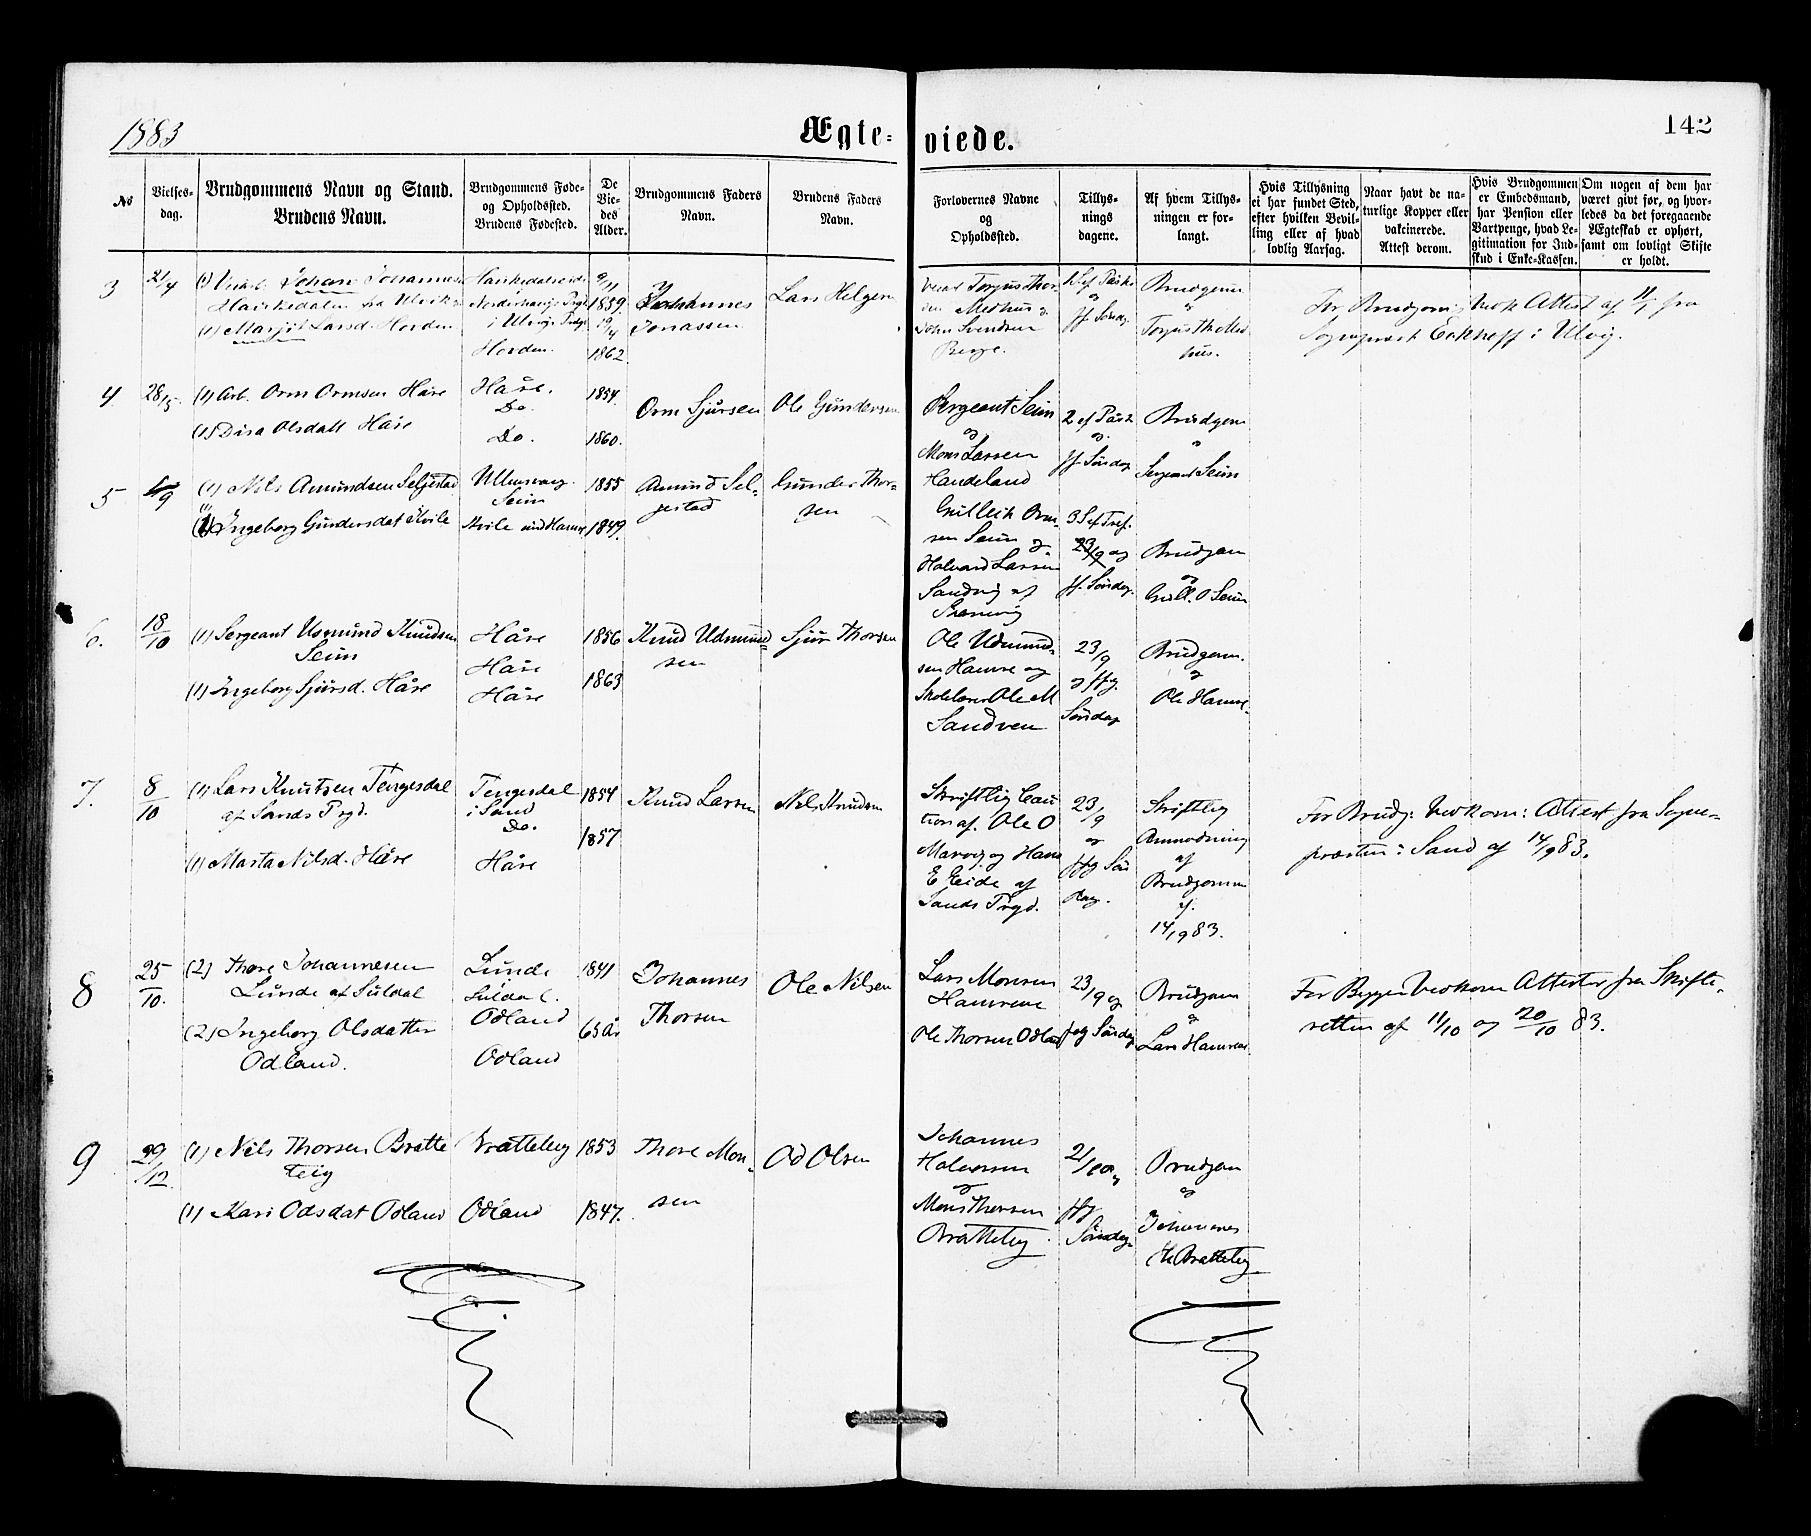 1883
Ægte-
viede.
142
No
Vielses-
dag.
Brudgommens Navn og Stand.
Brudens Navn.
Brudgommens Føde-
og Opholdssted.
Brudens Fødested.
De
Vie-
des
Alder.
Brudgommens Faders
Navn.
Brudens Faders
Navn.
Forlovernes Navne
og
Opholdssted.
Tillys-
nings
dagene.
Af hvem Tillys-
ningen er for-
langt.
Hvis Tillysning
ei har fundet Sted,
efter hvilken Bevil-
ling eller af hvad
lovlig Aarsag.
Naar havt de na-
turlige Kopper eller
vakcinerede.
Attest derom.
Hvis Brudgommen
er Embedsmand,
har Pension eller
Vartpenge, hvad Le-
gitimation for Ind-
skud i Enke-Kassen.
Om nogen af dem har
været givt før, og hvor-
ledes da det foregaaende
Ægteskab er ophørt,
samt om lovligt Skifte
er holdt.
3
21/4
(1) Johan Johannes
(1) Marjit Larsd. Horden
Horden.
9/11
1839.
19/4
1862
Johannes
Jonassen
Lars Helgesen
Torgus Thor
sen Medhus
John Svendsen
Berge.
ff. Søndg.
Brudgom
Torgus Th Med
hus.
For Brudgom: Vedk Attest af 11/1 fra
Sogneprest Eckhoff i Ulvig.
4
28/5
(1) Arb. Orm Ormsen Håre
(1) Disa Olsdatt Håre
Håre.
Do.
Do.
1854
1860.
Orm Sjursen
Ole Gundersen
Sergeant Seim
og
Mons Larsen
Handeland
2 ef Pask
og
ff. Søndag
Brudgom
Sergeant Seim
5
6/9
(1) Nils Amundsen Seljestad
(1) Ingeborg Gundersdat Hvile
Ullensvang.
Seim
Hvile
1855
1849.
Amund Sel-
jestad
Gunder Thor-
sen
Gullik Orm
sen Seim og
Halvard Larsen
Sandvig af
3 S ef Tref.
23/9 og
ff. Søndag.
Brudgom
og
Gull. O Seim
6.
18/10
(1) Sergeant Usmund Knudsen
Seim
(1) Ingeborg Sjursd. Håre
Håre
Håre
Håre
1856
1863
Knud Udmund-
sen
Sjur Thorsen
Ole Udmund-
sen Hamre og
Skolelærer Ole M
Sandven
23/9
og ffg.
Søndag
Brudgom.
og
Ole Hamre.
7.
8/10
(1) Lars Knutsen Tengesdal
af Sands Prgd.
(1) Marta Nilsd. Håre
Tengesdal
i Sand
Do.
Håre
1854
1857
Knud Larsen
Nils Knudsen
Skriftlig Cau
tion af. Ole O
Marvig og Hans
E Eide af
Sands Prgd.
23/9
og
ffg Søn
dag.
Skriftlig
Anmodning
af
Brudgommen
af
14/9 83.
For Brudg: Vedkom: Attest fra Sogne-
præsten i Sand af 14/9 83.
8
25/10.
(2) Thore Johannesen
Lunde af Suldal
(2) Ingeborg Olsdatter
Odland.
Lunde
Suldal.
Odland
Odland
1841
65 år
Johannes
Thorsen
Ole Nilsen
Lars Monsen
Hamrene
Ole Thorsen Odland
23/9 og
fg Søndag
Brudgom
og
Lars Hamrene
For Begge Vedkom Attester fra Skifte-
retten af 11/10 og 20/10 83.
9
29/12.
(1) Nils Thorsen Bratte
teig
(1) Kari Odsdat Odland
Bratteteig
Odland
1853
1847.
Thore Mon-
sen
Od Olsen
Johannes
Halvorsen
og
Mons Thorsen
Bratteteig
21/10 og
ffg
Søndag.
Brudgom
og
Johannes
H Bratteteig